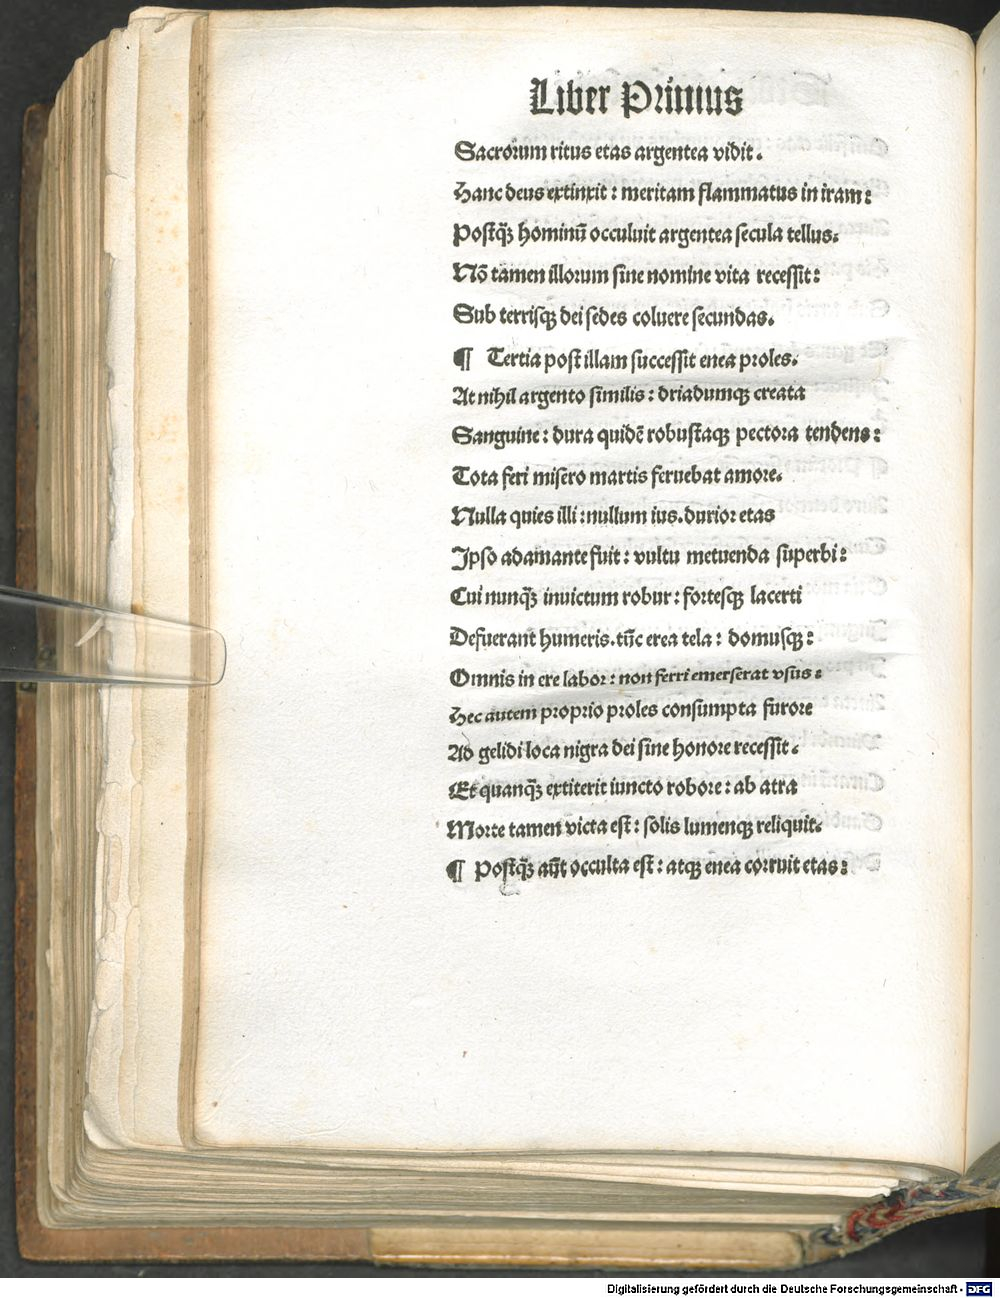 Liber Primus
Sacrorum ritus etas argentea vidit.
Hanc deus extinxit : meritam flammatus in iram :
Postq̄ʒ hominū occuluit argentea secula tellus.
Nō tamen illorum sine nomine vita recessit :
Sub terrisqʒ dei sedes coluere secundas.
¶ Tertia post illam successit enea proles.
At nihil argento similis : driadumqʒ creata
Sanguine : dura quidē robustaqʒ pectora tendens :
Tota feri misero martis feruebat amore.
Nulla quies illi : nullum ius. durior etas
Ipso adamante fuit : vultu metuenda superbi :
Cui nunq̄ʒ inuictum robur : fortesqʒ lacerti
Defuerant humeris. tūc erea tela : domusqʒ :
Omnis in ere labor : non ferri emerserat vsus :
Hec autem proprio proles consumpta furore
Ad gelidi loca nigra dei sine honore recessit.
Et quanq̄ʒ extiterit iuncto robore : ab atra
Morte tamen victa est : solis lumenqʒ reliquit.
¶ Postq̄ʒ aūt occulta est : atqʒ enea corruit etas :
Digitalisierung gefördert durch die Deutsche Forschungsgemeinschaft - DFG